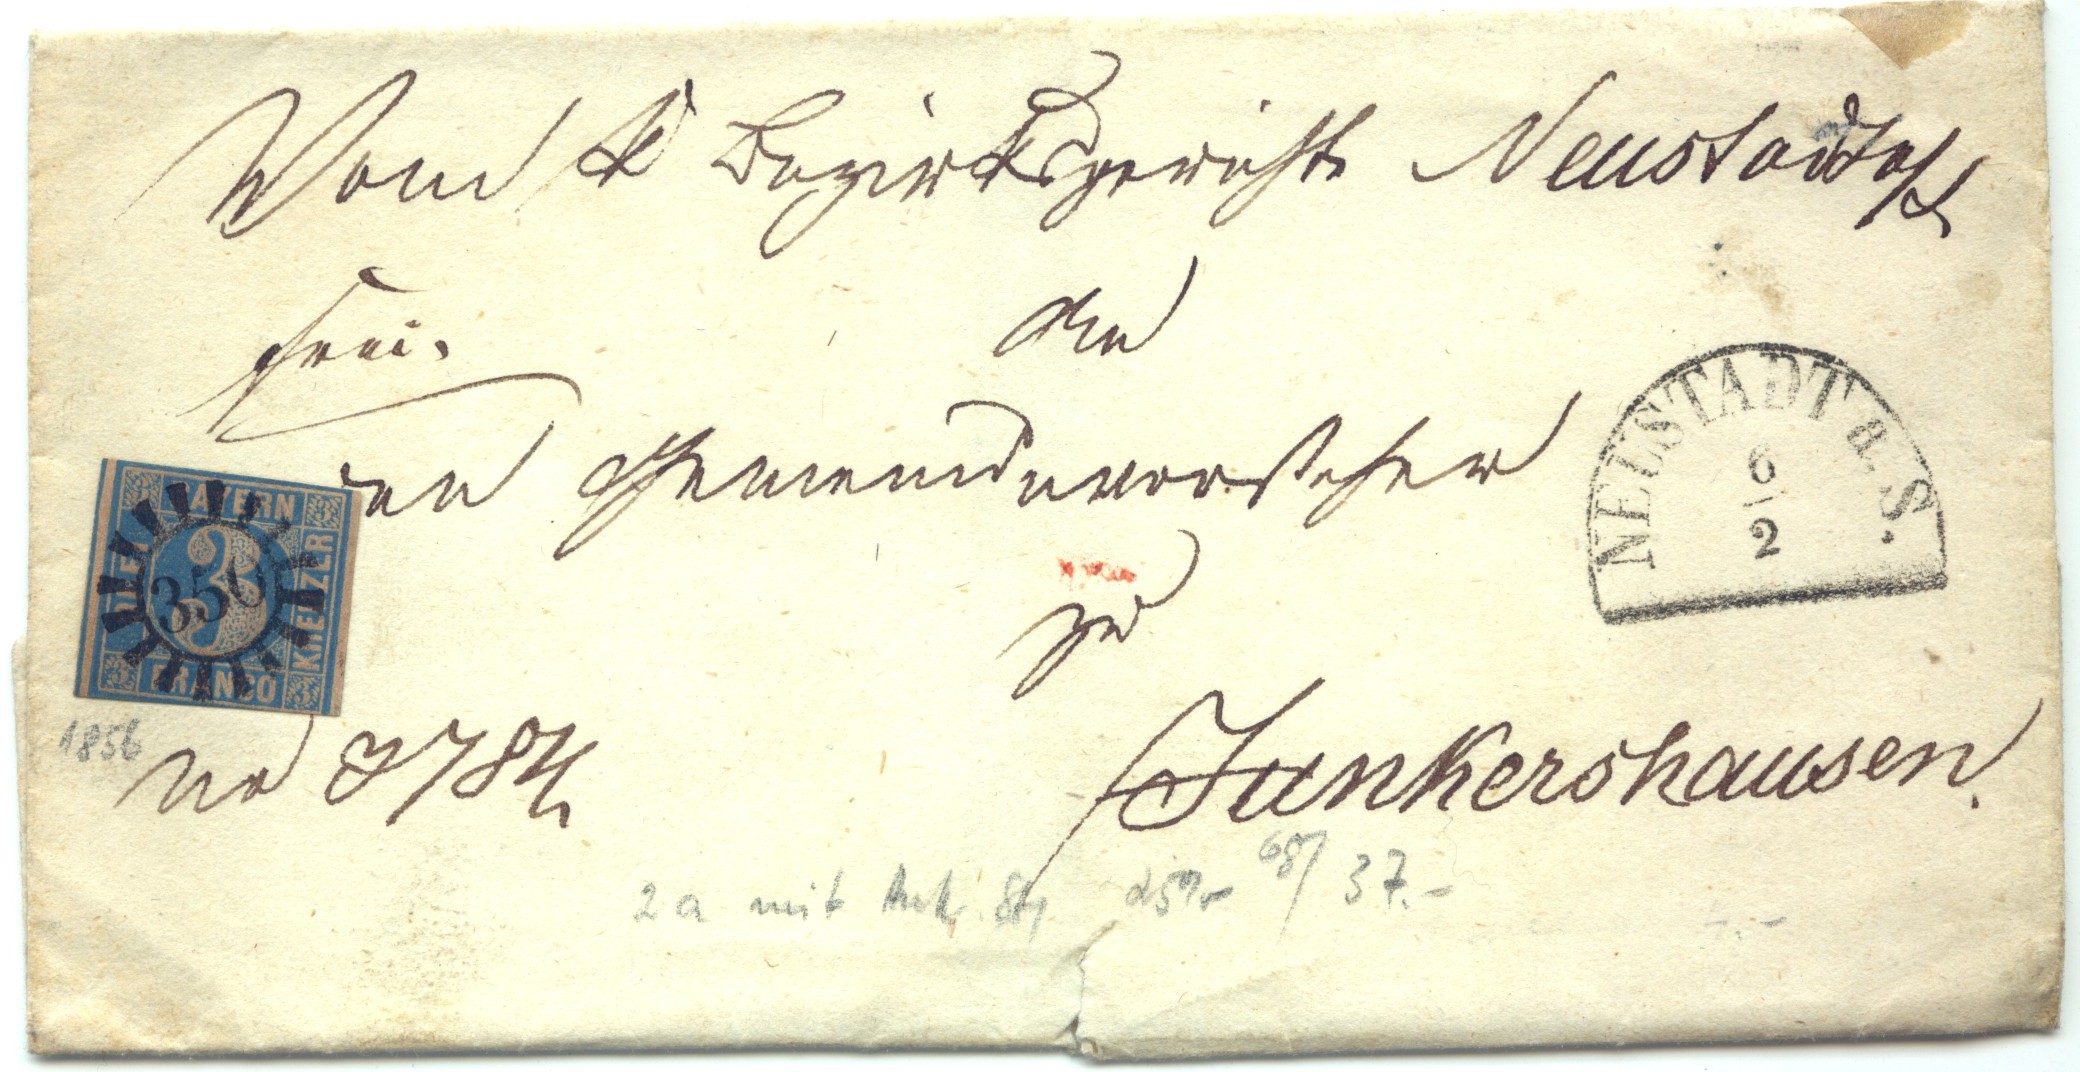 Vom k Bezirksgerichte Neustadt a/S
frei.
An
NEUSTADT a. S.
6
2
den Gemeindevorsteher
BAYERN
DREI
3
350
KREUZER
FRANCO
zu
1856
No 3784
Junkershausen.
2a mit 68/ 37.-